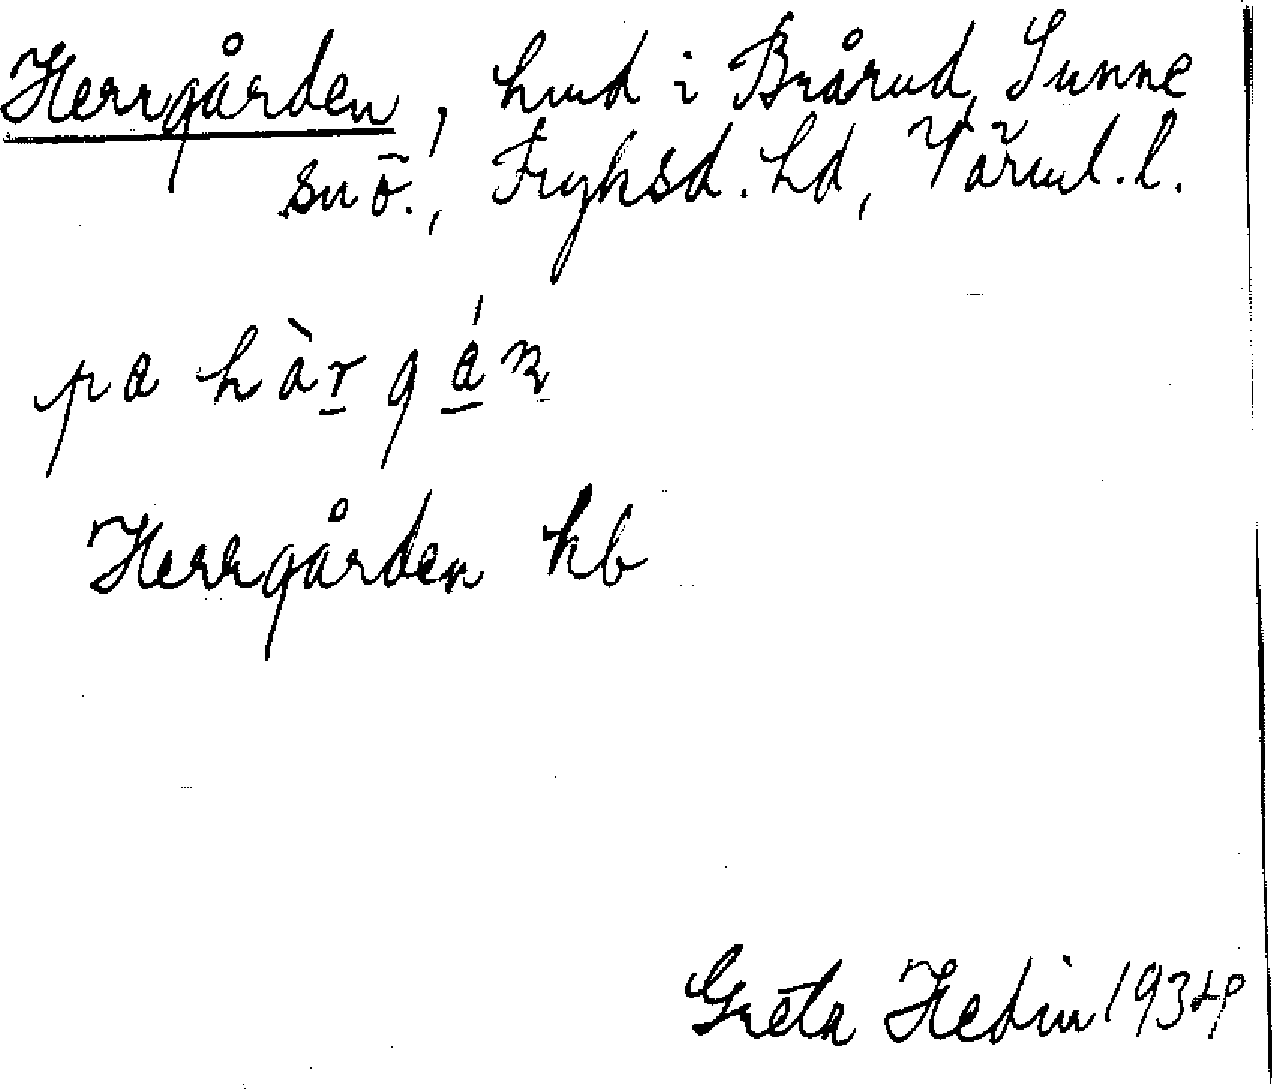 Herrgården, hmd i Brårud, Sunne
sn ö., Fryksd. hd, Värml. l.
pa hàr gán
Herrgården kb
Greta Hedin 1934